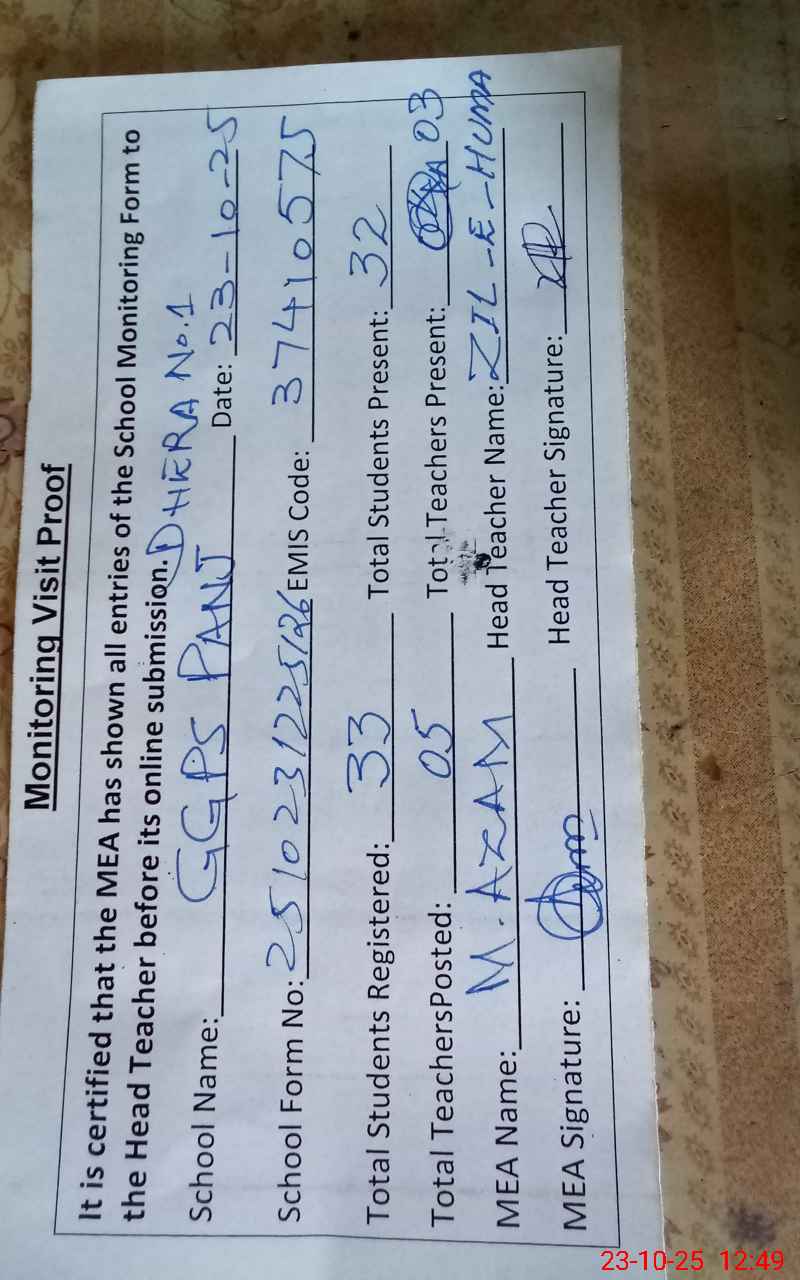 Monitoring Visit Proof
It is certified that the MEA has shown all entries of the School Monitoring Form to
the Head Teacher before its online submission.
School Name: GGPS PANJ DHERA No.1 Date: 23-10-25
School Form No: 2510231225126 EMIS Code: 37410575
Total Students Registered: 33 Total Students Present: 32
Total TeachersPosted: 05 Total Teachers Present: 03
MEA Name: M. AZAM Head Teacher Name: ZIL-E-HUMA
MEA Signature: Head Teacher Signature:
23-10-25 12:49